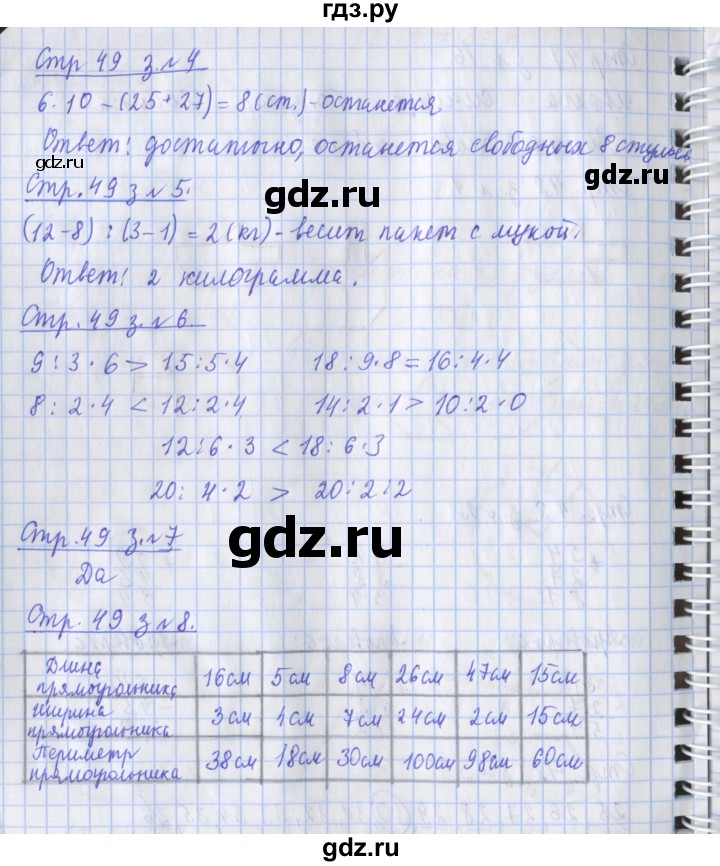 гдз.ру
Стр 49 з.№4
6·10-(25+27)=8(ст.)-останется
Ответ: достаточно, останется свободных 8 стульев
gdz.ru
gdz.ru
Стр.49 з №5.
(12-8):(3-1)=2(кг)-весит пакет с мукой.
Ответ: 2 килограмма.
Стр.49 з.№6
9:3·6>15:5·4 18:9·8=16:4·4
8:2·4<12:2·4 14:2·1>10:2·0
12:6·3<18:6·3
20:4·2>20:2:2
Стр.49 з.№7
gdz.ru
Да
Стр.49 з №8.
Длина прямоугольника 16см 5см 8см 26см 47см 15см
Ширина прямоугольника 3см 4см 7см 24см 2см 15см
Периметр прямоугольника 38см 18см 30см 100см 98см 60см
gdz.ru
gdz.ru